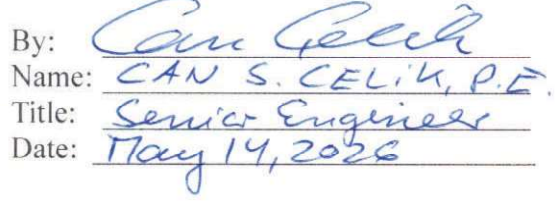 By: Can Celik
Name: CAN S. CELİK, P.E.
Title: Senior Engineer
Date: May 14, 2026